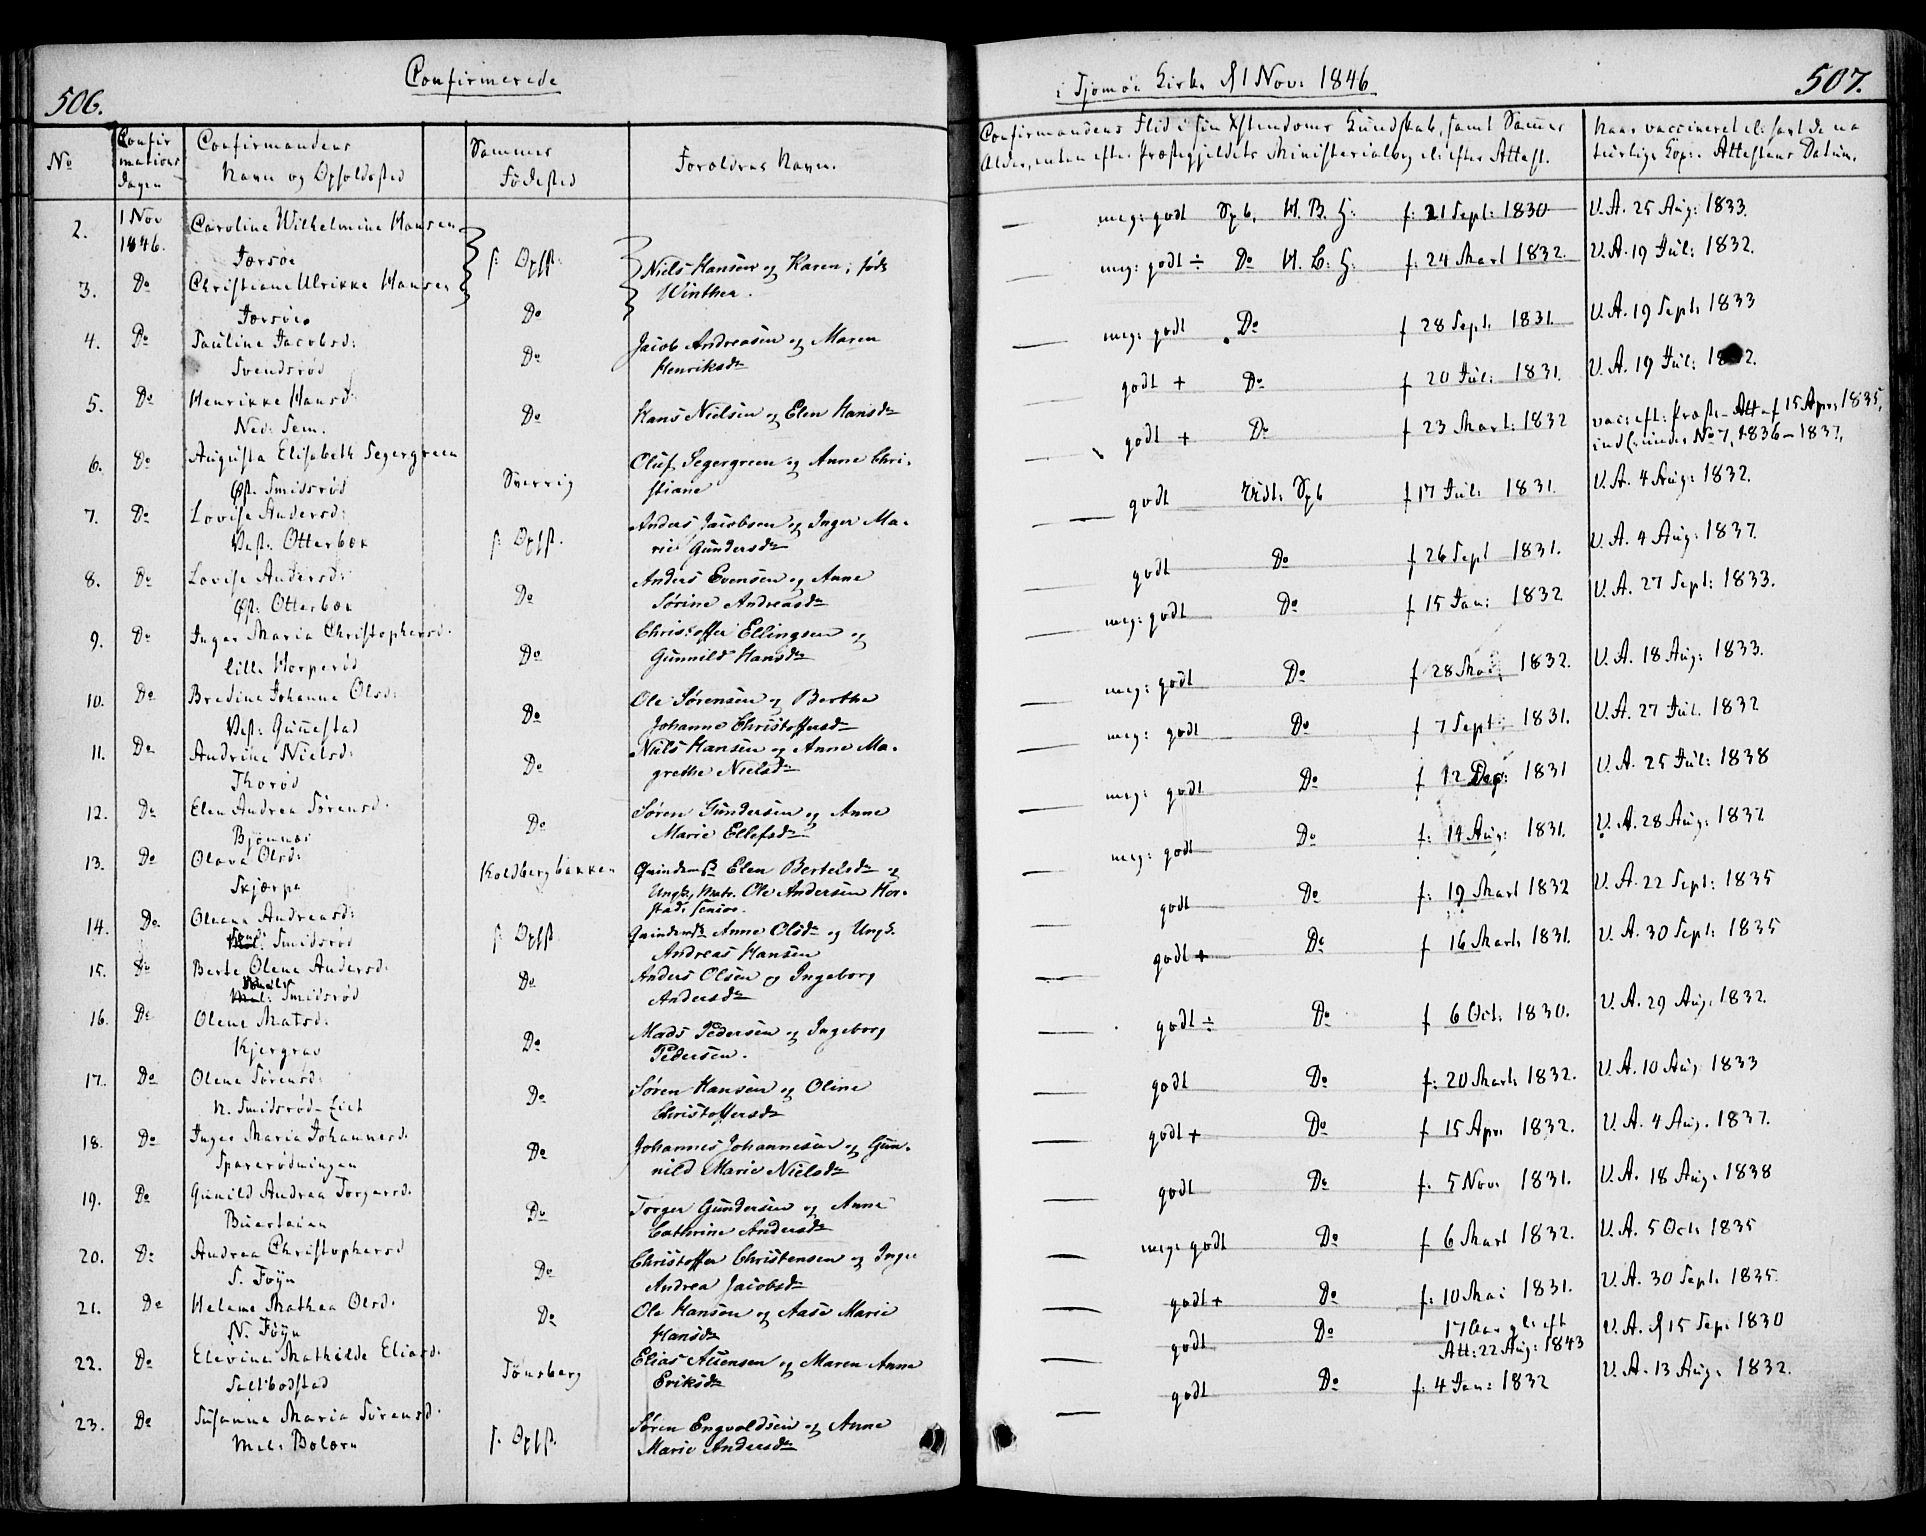 506.
Confirmerede
No
Confir
mations
dagen
Confirmandens
Navn og Opholdssted
Sammes
Fødested
Forældres Navn.
2. 1 Nov 1846. Caroline Wilhelmine Hansen
Færøe f: Opst.
Niels Hansen og Karen, født
Winther.
3. Do Christiane Ulrikke Hansen
Færøe Do
4. Do Pauline Jacobsd:
Svendsrød Do
Jacob Andreasen og Maren
Henriksdr
5. Do Henrikke Hansd:
Ned: Sem. Do
Hans Nielsen og Elen Hansdr
6. Do Augusta Elisabeth Segergreen
Øst. Smidsrød Sverrig
Oluf Segergreen og Anne Chri-
stiane
7. Do Lovise Andersd:
Vest: Otterbæk f: Opst.
Anders Jacobsen og Inger Ma-
rie Gundersdr
8. Do Lovise Andersd:
Øst: Otterbæk Do
Anders Evensen og Anne
Sørine Andreasdr
9. Do Inger Maria Christophersd.
Lille Horperød Do
Christoffer Ellingsen og
Gunnild Hansdr
10. Do Bredine Johanne Olsd:
Vest: Gunnestad Do
Ole Sørensen og Berthe
Johanne Christoffersdr
11. Do Andrine Nielsd:
Thorød Do
Niels Hansen og Anne Ma-
grethe Nielsdr
12. Do Elen Andrea Sørensd.
Bjønnæs Do
Søren Gundersen og Anne
Marie Ellefsdr
13. Do Olava Olsd:
Skjærpe Koldbergbakken
Qvindemsk Elen Bertelsdr og
Ungk. Matr. Ole Andersen Hor-
stad, senior.
14. Do Oleane Andreasd:
Smidsrød f: Opst.
Qvindemsk Anne Olsdr og Ungk.
Andreas Hansen
15. Do Berte Olene Andersd:
Smidsrød Do
Anders Olsen og Ingeborg
Andersdr
16. Do Olene Matsd:
Kjergrav Do
Mads Pedersen og Ingeborg
Pedersen.
17. Do Olene Sørensd:
N. Smidsrød-Eiet Do
Søren Hansen og Oline
Christoffersdr
18. Do Inger Maria Johannesd.
Sparerødningen Do
Johannes Johannesen og Gun-
nild Marie Nielsdr
19. Do Gunild Andrea Torgersd.
Buerteien Do
Torger Gundersen og Anne
Cathrine Andersdr
20. Do Andrea Christophersd
S. Føyn Do
Christoffer Christensen og Inger
Andrea Jacobsdr
21. Do Helene Mathea Olsd.
N. Føyn Do
Ole Hansen og Aase Marie
Hansdr
22. Do Elevine Mathilde Eliasd.
Saltbodstad Tønsberg
Elias Ausensen og Maren Anne
Eriksdr
23. Do Susanne Maria Sørensd.
Mel: Bolærn f. Opst.
Søren Engvoldsen og Anne
Marie Andersdr
i Tjømøe Kirke d 1 Nov: 1846
507.
Confirmandens Flid i sin Xstendoms Kundskab, samt Sammes
Alder, enten efter Præstegjeldets Ministerialbog el: efter Attest.
Naar vaccineret el: havt de na
turlige Kop: Attestens Datum.
meg: godt Spb. H. B. H: f: 21 Sept: 1830 V. A. 25 Aug: 1833.
meg: godt ÷ Do H. C. H: f: 24 Mart 1832 V. A. 19 Jul: 1832.
meg: godt Do f 28 Sept. 1831. V. A. 19 Sept. 1833
godt + Do f 20 Jul: 1831. V. A. 19 Jul: 1832.
godt + Do f 23 Mart: 1832 vac: eft: Præste-Att af 15 Apr. 1835,
indf: under No 7, 1836-1837.
godt Udt: Spb f 17 Jul: 1831. V. A. 4 Aug: 1832.
godt Do f 26 Sept 1831. V. A. 4 Aug: 1837.
meg: godt Do f 15 Jan: 1832 V. A. 27 Sept: 1833.
meg: godt Do f 28 Mai, 1832. V. A. 18 Aug: 1833.
meg: godt Do f 7 Sept: 1831. V. A. 27 Jul. 1832
meg: godt Do f 12 Dec: 1831 V. A. 25 Jul: 1838
meg: godt Do f: 14 Aug: 1831. V. A. 28 Aug: 1832
godt Do f: 19 Mart 1832 V. A. 22 Sept: 1835
godt + Do f 16 Mart. 1831. V. A. 30 Sept: 1835
godt ÷ Do f 6 Oct: 1830. V. A. 29 Aug. 1832.
godt Do f: 20 Mart. 1832. V. A. 10 Aug 1833
godt + Do f 15 Apr. 1832. V. A. 4 Aug. 1837.
godt Do f: 5 Nov. 1831. V. A. 18 Aug. 1838
meg: godt Do f 6 Mart 1832. V. A. 5 Oct. 1835
godt + Do f: 10 Mai 1831. V. A. 30 Sept. 1835.
godt Do 17 Aar gl: eft
Att: 22 Aug: 1843 V. A. d 15 Sep. 1830
godt Do f: 4 Jan: 1832 V. A. 13 Aug. 1832.